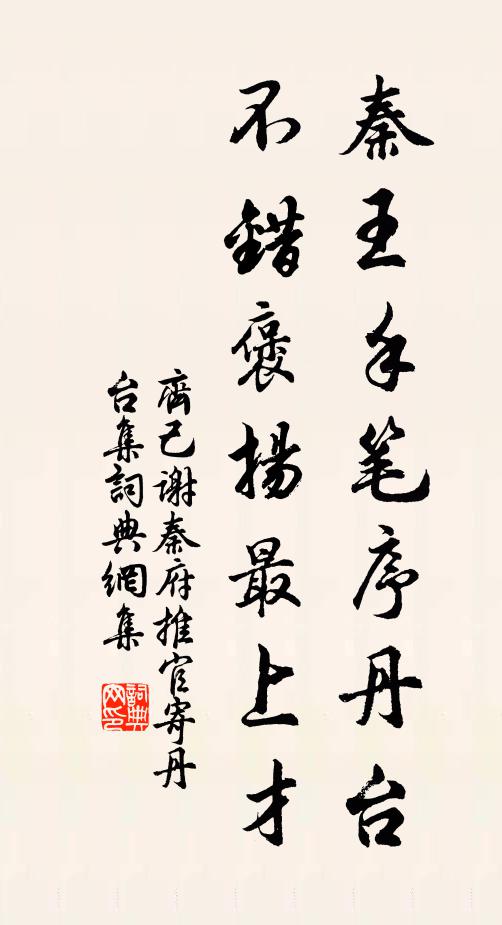 秦王手笔序丹台
不錯褒揚最上才
齊己謝秦府推官寄丹
台集詞典網集
詞典网印